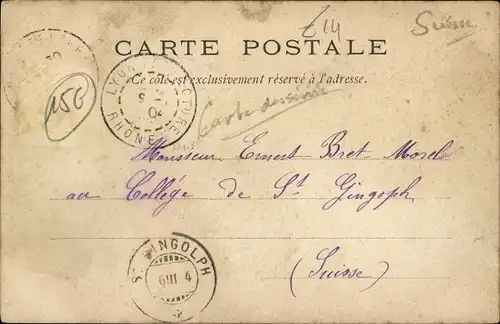 £14
Suisse
CARTE POSTALE
Ce côté est exclusivement réservé à l'adresse.
150
LYON PRÉFECTURE
5
04
RHONE
Carte dessinée
Monsieur Ernest Bret Morel
au Collége de St Gingoph
(Suisse)
ST GINGOLPH
6 III 4